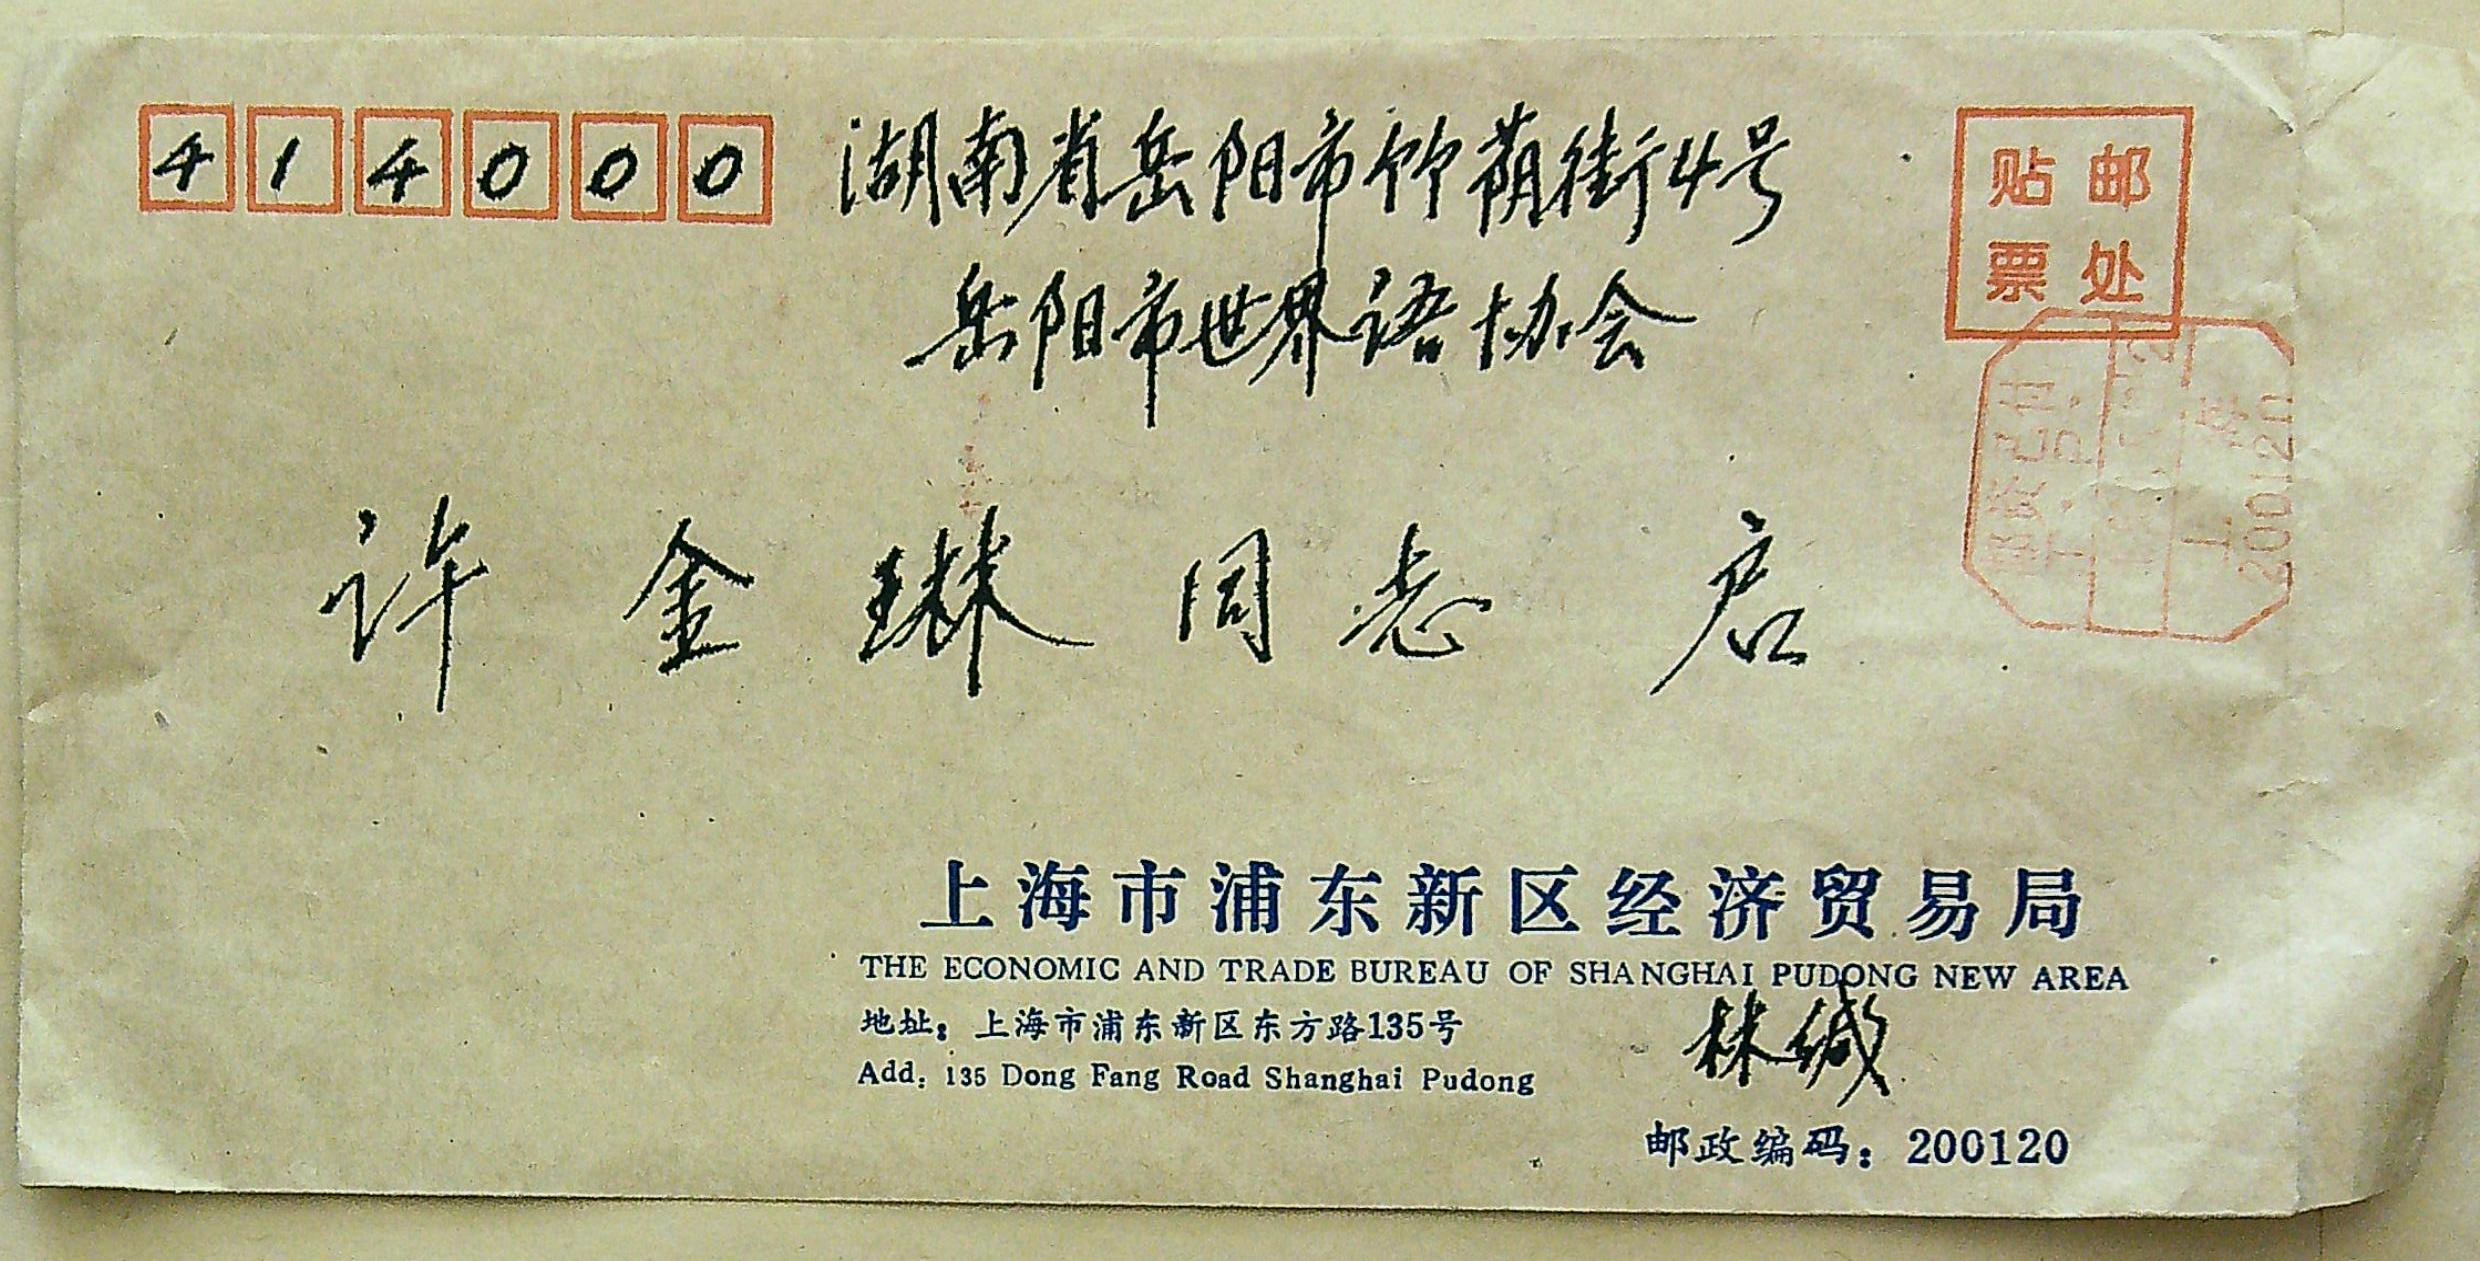 414000
湖南省岳阳市竹荫街4号
岳阳市世界语协会
贴邮
票处
上海
200120
许金琳同志 启
上海市浦东新区经济贸易局
THE ECONOMIC AND TRADE BUREAU OF SHANGHAI PUDONG NEW AREA
地址：上海市浦东新区东方路135号
林缄
Add: 135 Dong Fang Road Shanghai Pudong
邮政编码：200120